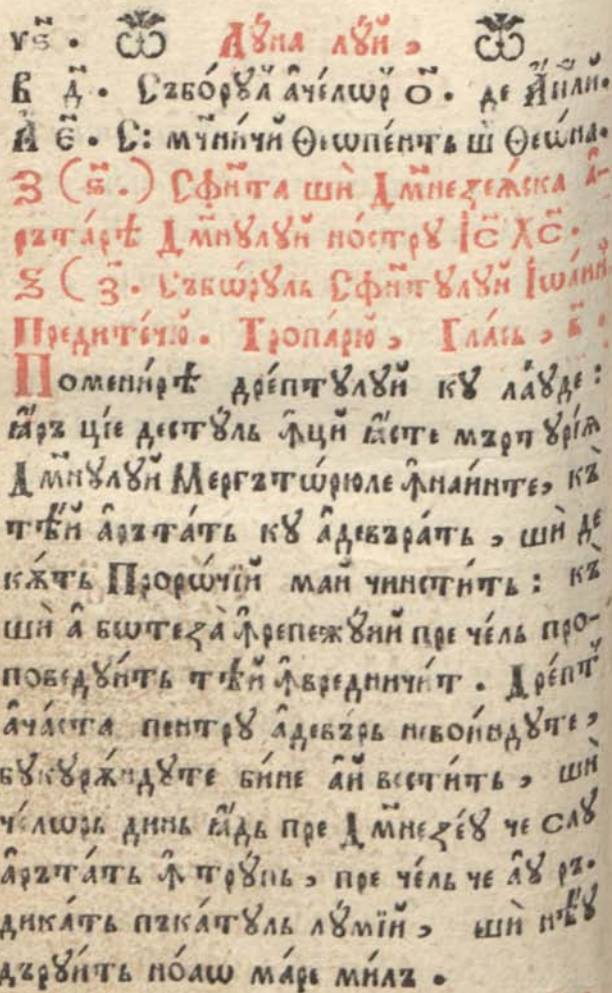 ѵ҃ѕ. Аꙋ́на лꙋ́й,
В д҃. Съборꙋ́л ачéлѡр о҃. де Апⷭ҇ли.
А є҃. С: мч҃ничй Ѳеѡпéнть ши Ѳеѡ́на.
З (ѕ҃.) Сфн҃та ши Дм҃незеꙗ́ска а̂-
рътáрѣ Дм҃нꙋлꙋй ностру Іс҃ Хс҃.
Ѕ (з҃. Събѡ́рꙋль Сфн҃тꙋлꙋй Іѡáнн
Предитéчїю. Тропáрю, Глáсь, в҃:
Поменирѣ дрéптꙋлꙋй кꙋ лáꙋде:
ꙗ́ръ ціе дестꙋ́ль ꙟ̂цй ꙗ́сте мърт ꙋрі́ѧ
Дм҃нꙋлꙋй Мергътѡ́рюле ꙟ̂наинте, къ
тѣ́й а̂рътáть кꙋ а̂девърáть, шѝ де
кѫ́ть Прорѡ́чїй май чинсти́ть: къ
шѝ а̂ ботезà ꙟ̂репежꙋ́ний пре чéль про-
поведꙋи́ть тѣ́й ꙟ̂вредничи́т. Дрéпт
а̂чáста пентрꙋ а̂девъ́рь невои́ндꙋте,
бꙋкꙋрѫ́ндꙋте би́не а̂й вести́ть, шѝ
чéлѡрь динь ꙗ́дь пре Дм҃незéꙋ че слꙋ
а̂рътáть ꙟ̂ трꙋ́пь, пре чéль че а̂ꙋ ръ-
дикáть пъкáтꙋль лꙋ́мїй, шѝ нѣꙋ
дърꙋи́ть нóаѡ мáре ми́лъ.